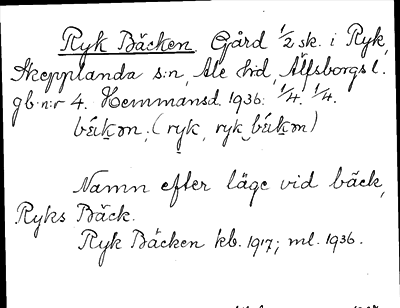 Ryk Bäcken. Gård 1/2 sk. i Ryk,
Skepplanda s:n, Ale hrd, Älfsborgs l.
gb.n:r 4. Hemmansd. 1936: 1/4. 1/4.
(ryk, ryk
Namn efter läge vid bäck,
Ryks Bäck.
Ryk Bäcken kb. 1917; ml. 1936.